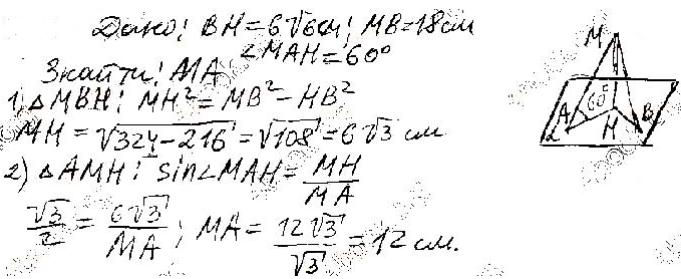 Дано: BH=6√6см; MB=18см
∠MAH=60°
Знайти: MA
1) △MBH: MH²=MB²-HB²
MH=√324-216=√108=6√3 см
2) △AMH: sin∠MAH=MH/MA
√3/2=6√3/MA; MA=12√3/√3=12см.
M
A 60° H B
α